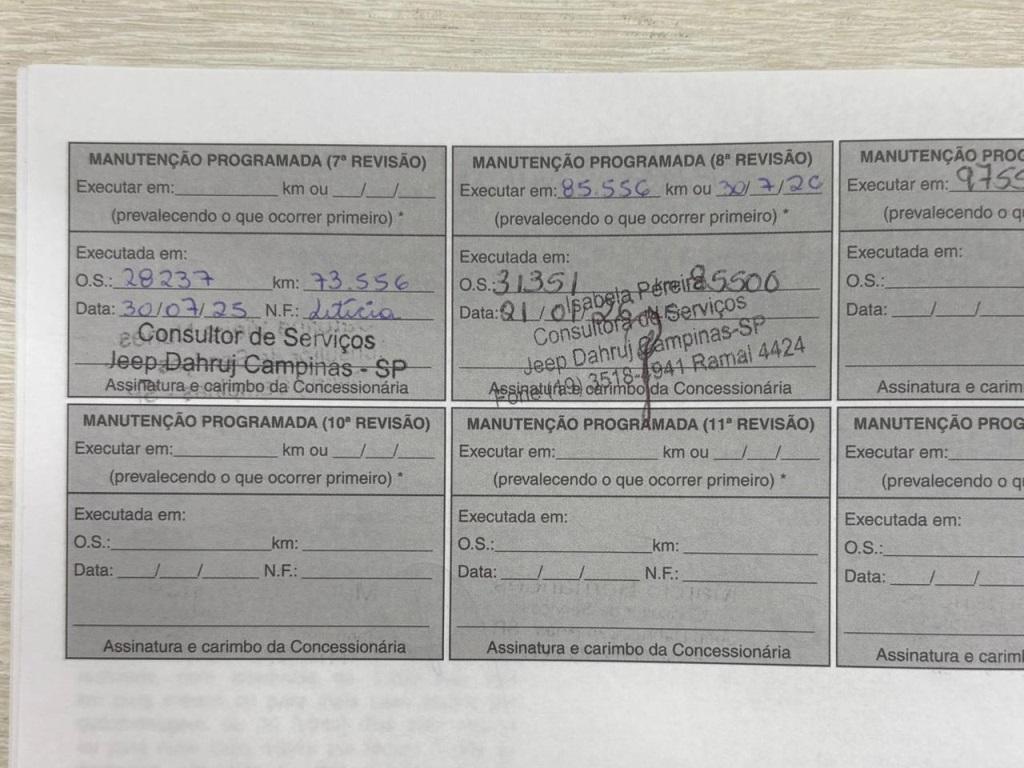 MANUTENÇÃO PROGRAMADA (7ª REVISÃO)
Executar em:__________ km ou ___/___/___
(prevalecendo o que ocorrer primeiro) *
Executada em:
O.S.: 28237 km: 73.556
Data: 30/07/25 N.F.: Letícia
Consultor de Serviços
Jeep Dahruj Campinas - SP
Assinatura e carimbo da Concessionária
MANUTENÇÃO PROGRAMADA (8ª REVISÃO)
Executar em: 85.556 km ou 30/7/26
(prevalecendo o que ocorrer primeiro) *
Executada em:
O.S.: 31351 85500
Data: 21/01/26
Isabela Pereira
Consultora de Serviços
Jeep Dahruj Campinas-SP
Fone (19) 3518-4941 Ramal 4424
Assinatura e carimbo da Concessionária
MANUTENÇÃO PROG
Executar em: 975
(prevalecendo o q
Executada em:
O.S.:
Data: ___/___/
Assinatura e carim
MANUTENÇÃO PROGRAMADA (10ª REVISÃO)
Executar em:__________ km ou ___/___/___
(prevalecendo o que ocorrer primeiro) *
Executada em:
O.S.:__________ km: __________
Data: ___/___/___ N.F.:__________
Assinatura e carimbo da Concessionária
MANUTENÇÃO PROGRAMADA (11ª REVISÃO)
Executar em:__________ km ou ___/___/___
(prevalecendo o que ocorrer primeiro) *
Executada em:
O.S.:__________ km: __________
Data: ___/___/___ N.F.:__________
Assinatura e carimbo da Concessionária
MANUTENÇÃO PROG
Executar em:
(prevalecendo o q
Executada em:
O.S.:
Data: ___/___/
Assinatura e carim